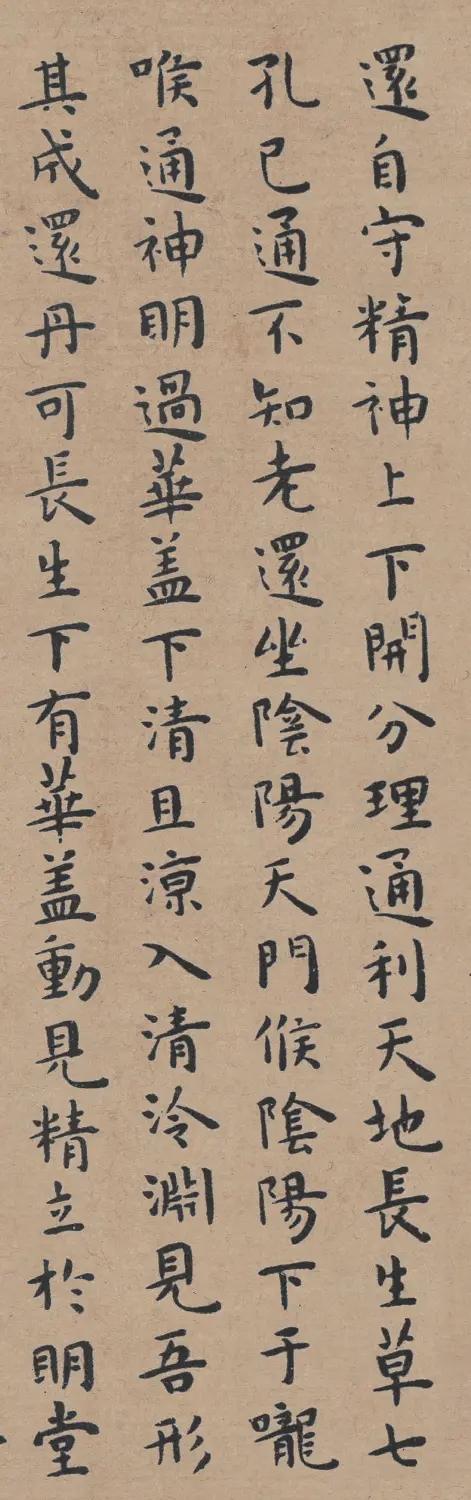 還自守精神上下開分理通利天地長生草七
孔已通不知老還坐陰陽天門候陰陽下于嚨
喉通神明過華盖下清且涼入清泠淵見吾形
其成還丹可長生下有華盖動見精立於明堂